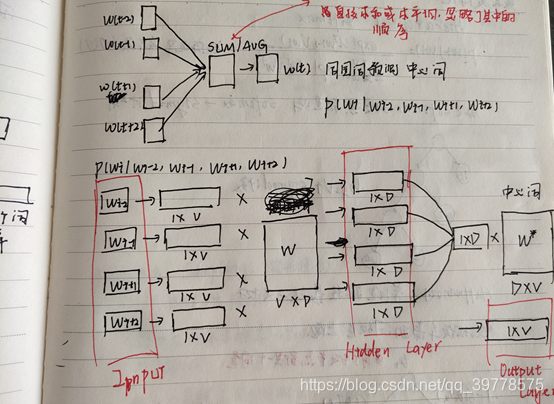 是直接求和或求平均,忽略了其中的
顺序
w(t-2)
w(t-1)
w(t+1)
w(t+2)
SUM/AVG
w(t)
周围词预测中心词
P(wt/wt-2, wt-1, wt+1, wt+2)
P(wt/wt-2, wt-1, wt+1, wt+2)
wt-2
1×V
×
1×D
wt-1
1×V
×
W
1×D
1×D
×
中心词
W*
wt+1
1×V
×
V×D
1×D
D×V
wt+2
1×V
×
1×D
1×V
Input
Hidden Layer
Output
Layer
https://blog.csdn.net/qq_39778575